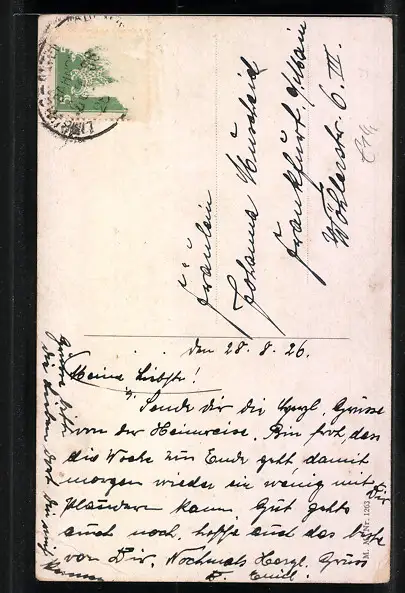 LIMB
Fräulein
Johanna Müscheid
Frankfurt /Main
Wöhlerstr. 6. III.
den 28.8.26.
Meine Liebste!
Sende dir die herzl. Grüsse
von der Heimreise. Bin froh, dass
die Woche zu Ende geht damit
morgen wieder ein wenig mit Dir
plaudern kann. Gut gehts
auch noch, hoffe auch das beste
von Dir. Nochmals Herzl. Gruss
Emil.
Nr. 1263